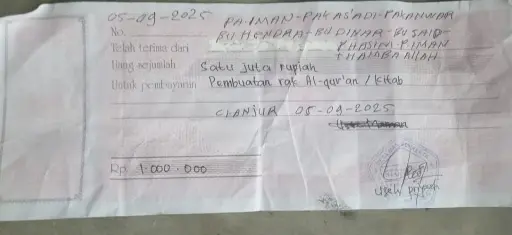 05-09-2025
No.
PA-IMAN-PAK ASADI-PAKANWAR
BU HENDRA-BU DINAR-BU SAID-
Telah terima dari
P HASIM-P IMAN
+ HAMBA ALLAH
Uang sejumlah Satu juta rupiah
Untuk pembayaran Pembuatan rak Al-qur'an / kitab
CIANJUR 05-09-2025
Rp 1.000.000